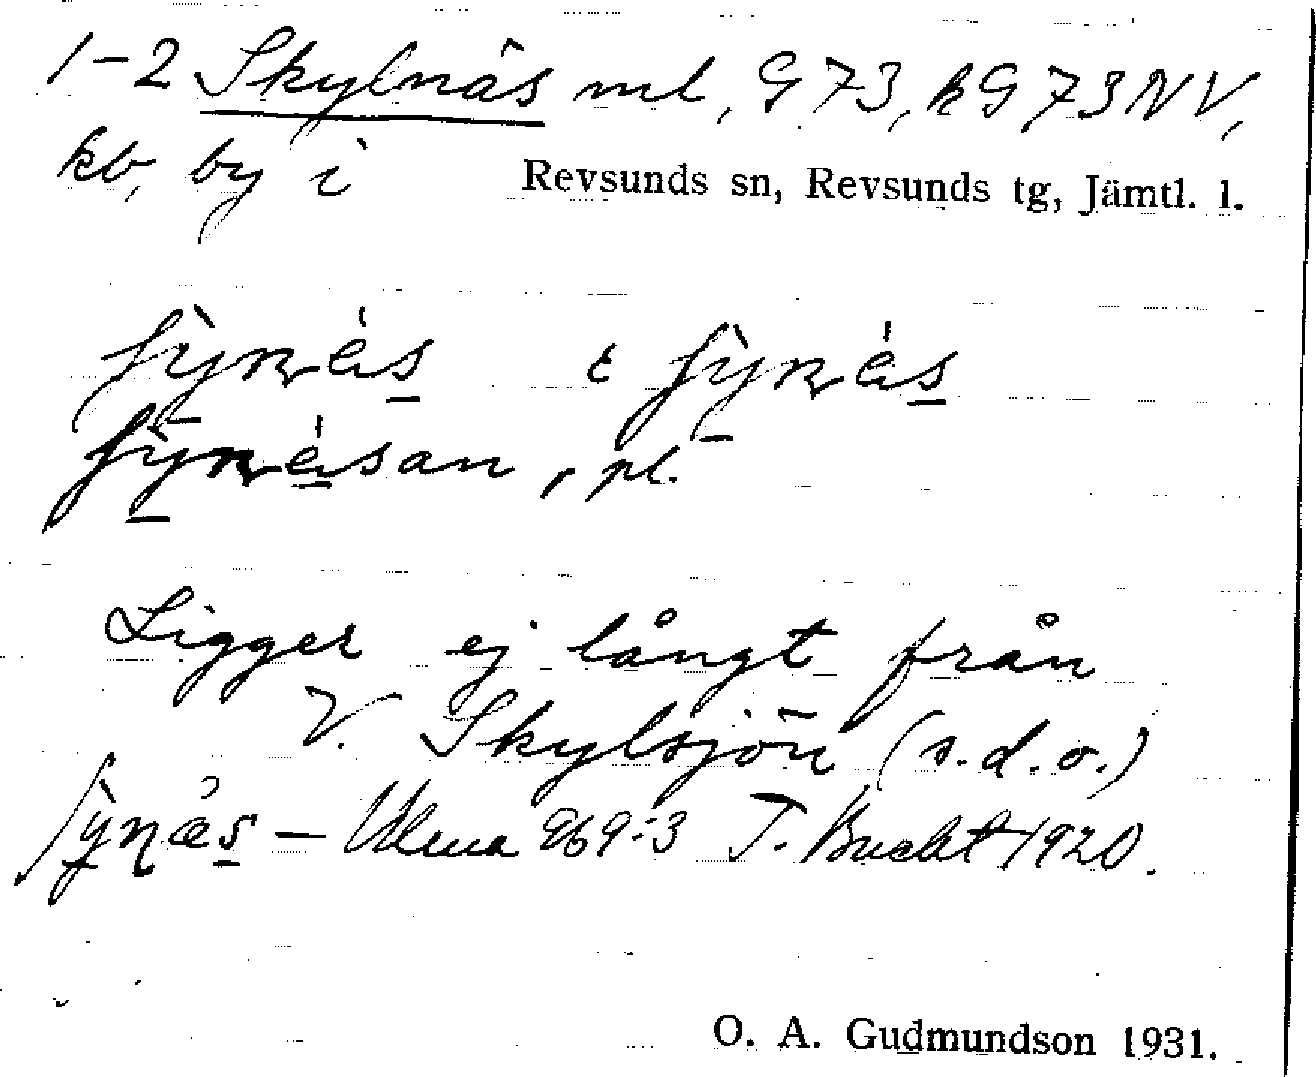 1-2 Skylnäs ml, G 73, kG 73 NV,
kb, by i Revsunds sn, Revsunds tg, Jämtl. l.
t
, pl.
Ligger ej långt från
V. Skylsjön (s.d.o.)
— Ulma 969:3 T. Bucht 1920.
O. A. Gudmundson 1931.